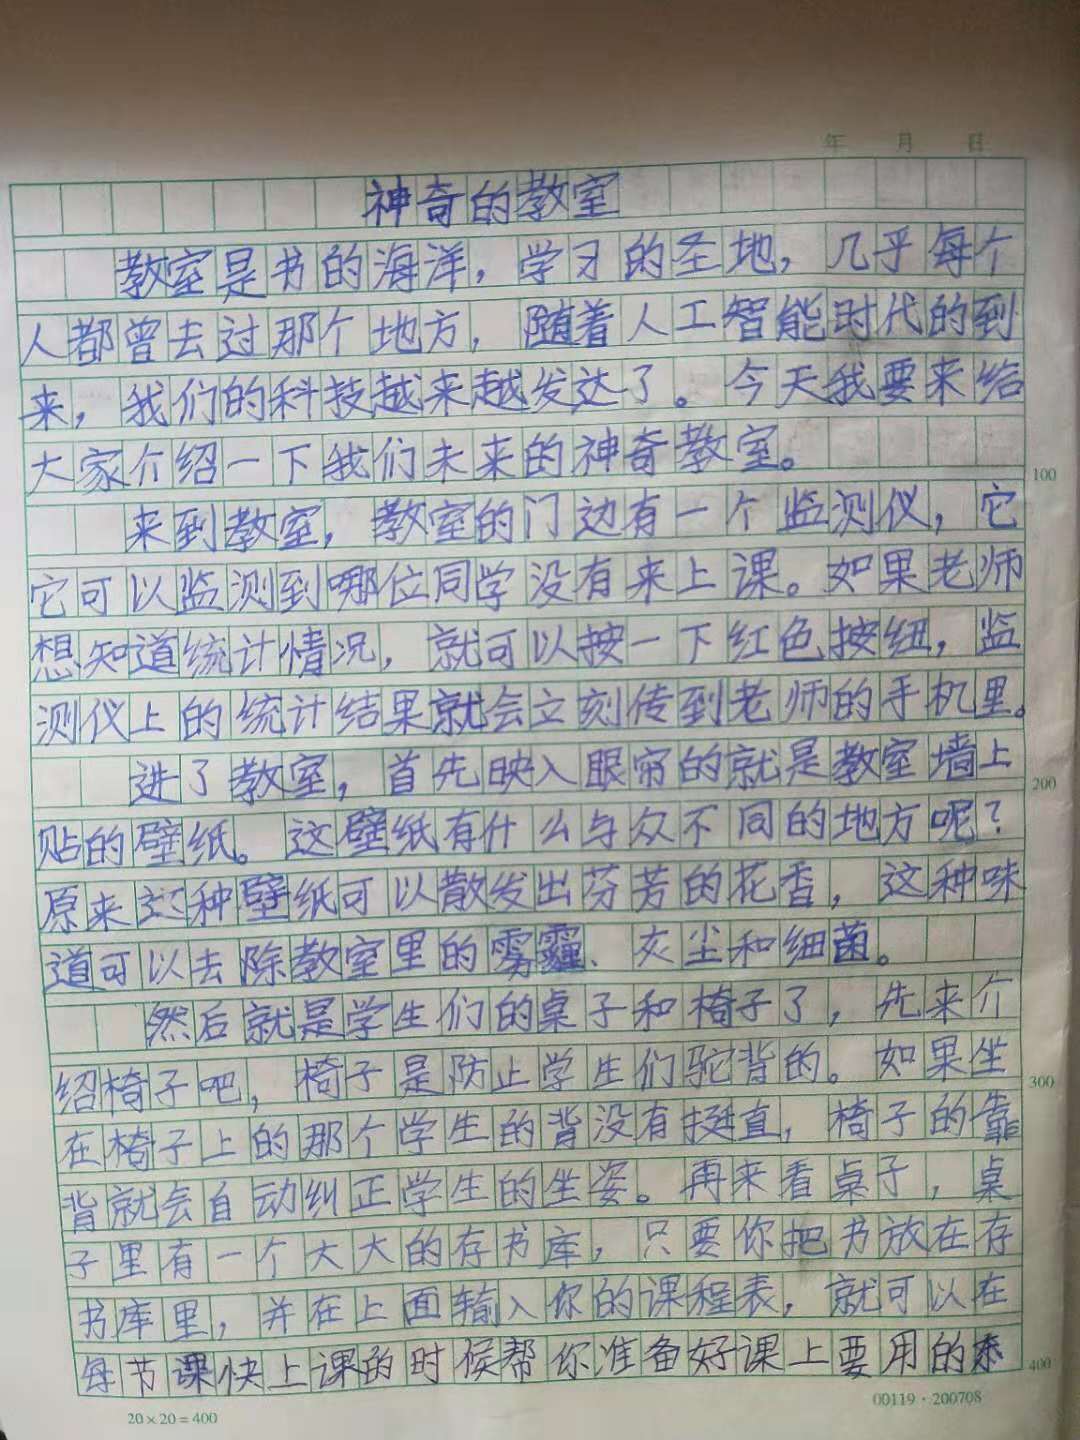 年 月 日
神奇的教室
教室是书的海洋，学习的圣地，几乎每个
人都曾去过那个地方，随着人工智能时代的到
来，我们的科技越来越发达了。今天我要来给
大家介绍一下我们未来的神奇教室。
100
来到教室，教室的门边有一个监测仪，它
它可以监测到哪位同学没有来上课。如果老师
想知道统计情况，就可以按一下红色按纽，监
测仪上的统计结果就会立刻传到老师的手机里。
进了教室，首先映入眼帘的就是教室墙上
200
贴的壁纸。这壁纸有什么与众不同的地方呢？
原来这种壁纸可以散发出芬芳的花香，这种味
道可以去除教室里的雾霾、灰尘和细菌。
然后就是学生们的桌子和椅子了，先来介
绍椅子吧，椅子是防止学生们驼背的。如果坐
300
在椅子上的那个学生的背没有挺直，椅子的靠
背就会自动纠正学生的坐姿。再来看桌子，桌
子里有一个大大的存书库，只要你把书放在存
书库里，并在上面输入你的课程表，就可以在
每节课快上课的时候帮你准备好课上要用的
400
20×20=400
00119·200708